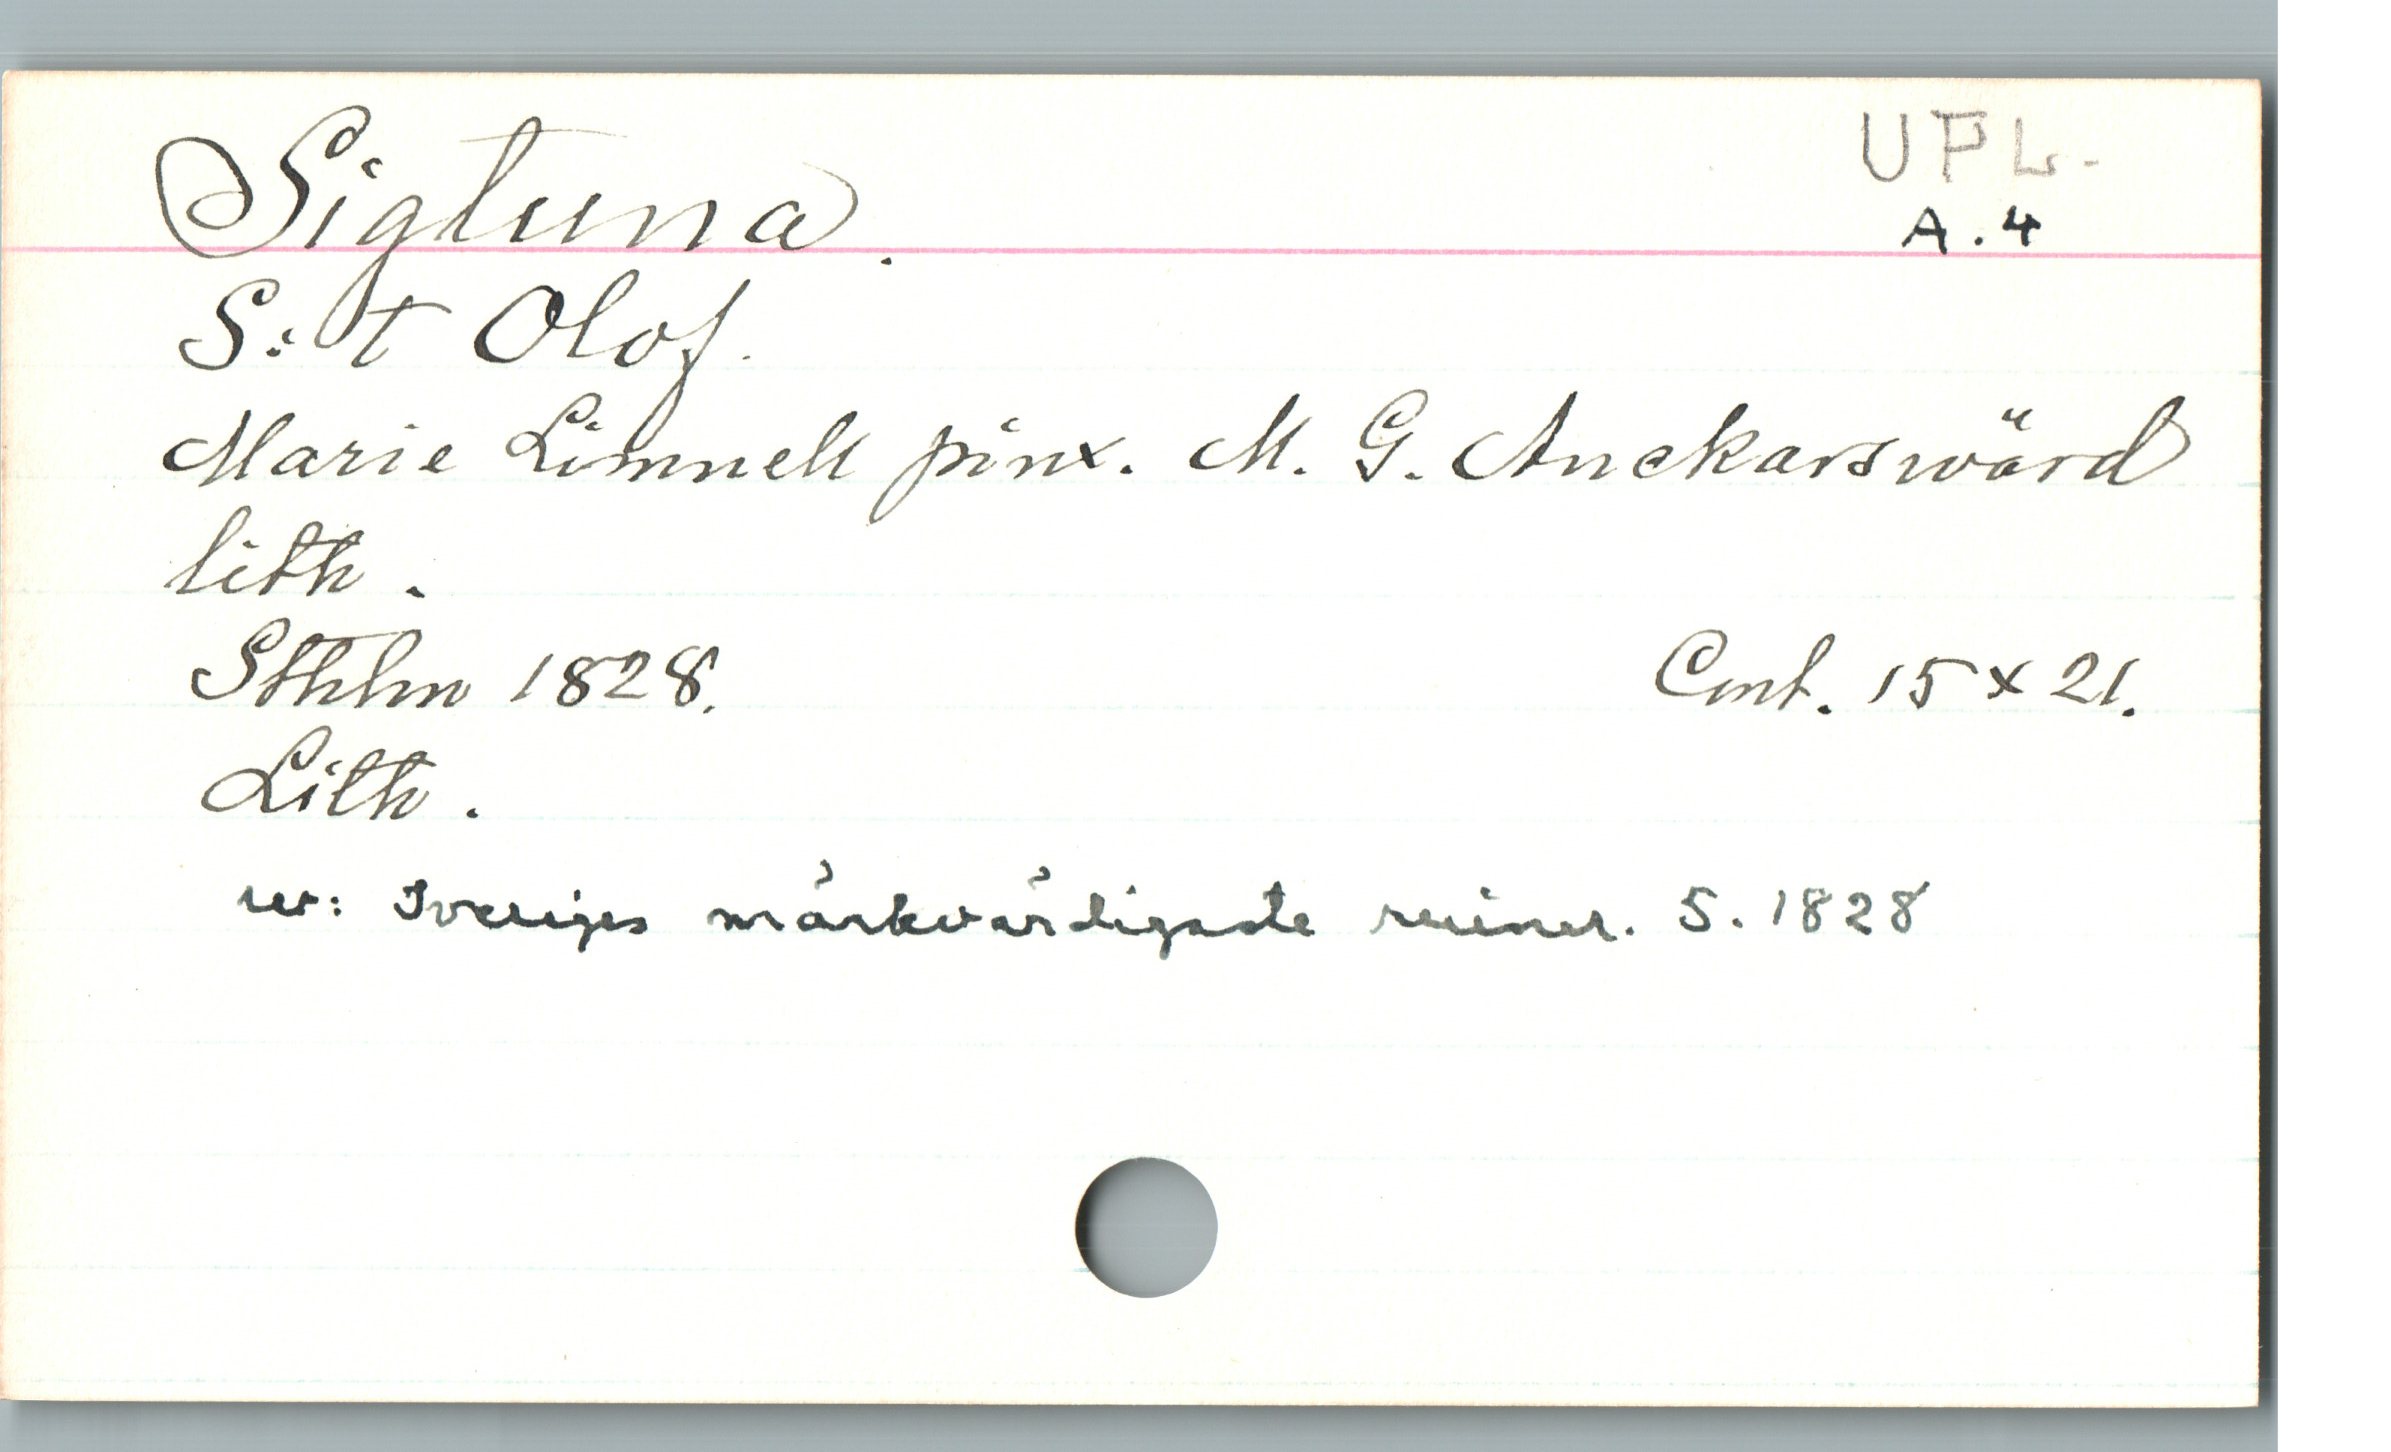 Sigtuna.
UPL.
A.4
S:t Olof.
Marie Limnell pinx. M. G. Anckarswärd
lith.
Sthlm 1828. Cont. 15 x 21.
Lith.
ur: Sveriges märkvärdigaste ruiner. 5. 1828